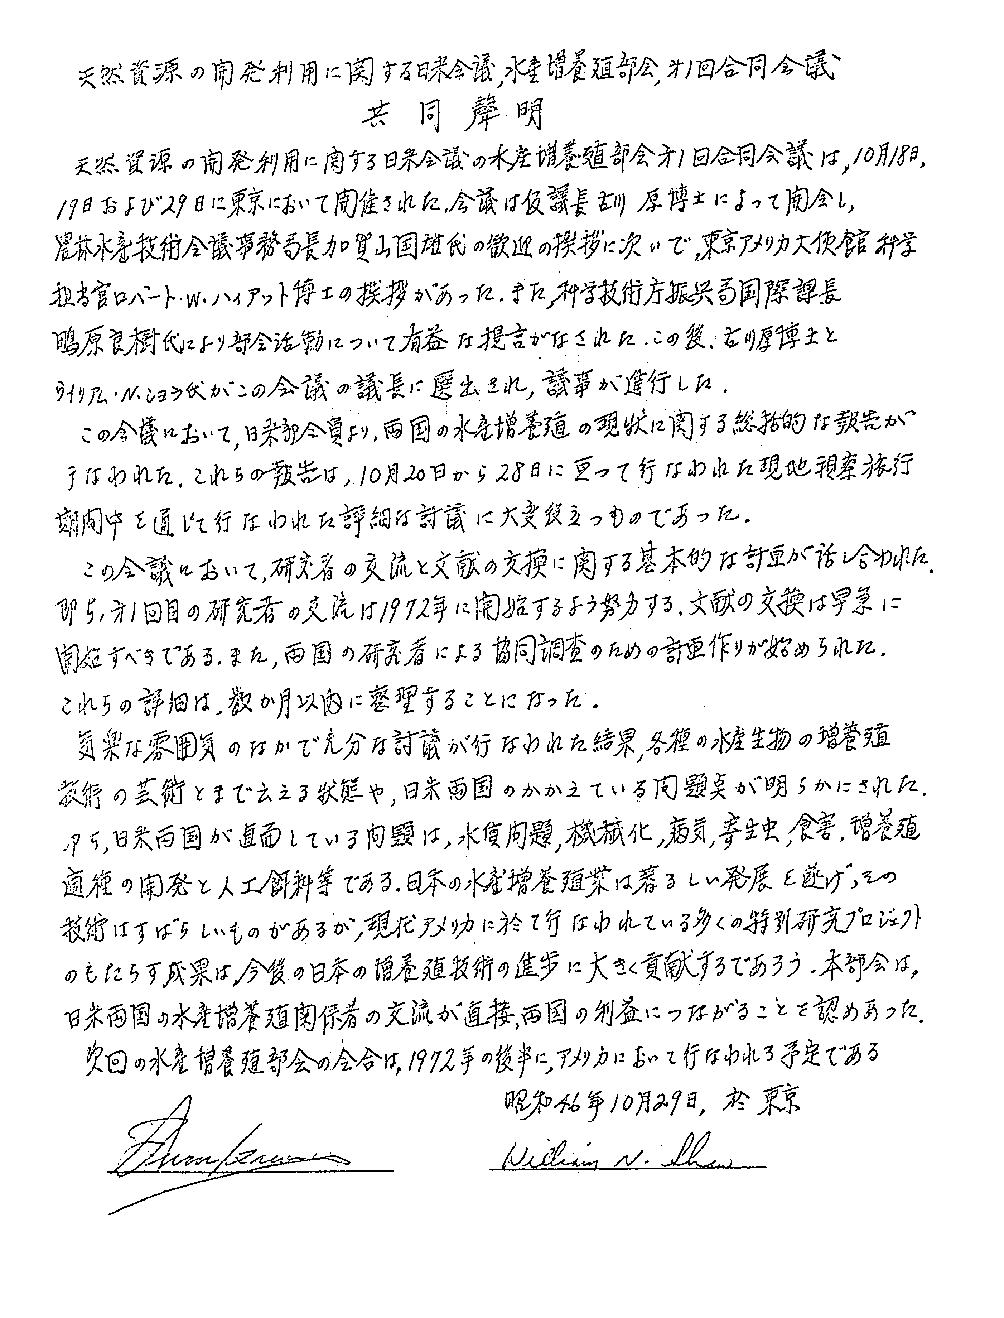 天然資源の開発利用に関する日米会議,水産増養殖部会,才1回合同会議
共同聲明
天然資源の開発利用に関する日米会議の水産増養殖部会才1回合同会議は,10月18日,
19日および29日に東京において開催された.会議は仮議長古川 厚博士によって開会し,
農林水産技術会議事務局長加賀山国雄氏の歓迎の挨拶に次いで,東京アメリカ大使館科学
担当官ロバート・W.ハイアット博士の挨拶があった.また,科学技術庁振興局国際課長
鴫原良樹氏により部会活動について有益な提言がなされた.この後,古川厚博士と
ウイリアム・N.ショウ氏がこの会議の議長に選出され,議事が進行した.
この会議において,日米部会員より,両国の水産増養殖の現状に関する総括的な報告が
行なわれた.これらの報告は,10月20日から28日に亘って行なわれた現地視察旅行
期間中を通じて行なわれた詳細な討議に大変役立つものであった.
この会議において,研究者の交流と文献の交換に関する基本的な計画が話し合われた.
即ち,才1回目の研究者の交流は1972年に開始するよう努力する.文献の交換は早急に
開始すべきである.また,両国の研究者による協同調査のための計画作りが始められた.
これらの詳細は,数か月以内に整理することになった.
気楽な雰囲気のなかで充分な討議が行なわれた結果,各種の水産生物の増養殖
技術の芸術とまで云える状態や,日米両国のかかえている問題点が明らかにされた.
即ち,日米両国が直面している問題は,水質問題,機械化,病気,寄生虫,食害,増養殖
適種の開発と人工餌料等である.日本の水産増養殖業は著るしい発展を遂げ,その
技術はすばらしいものがあるが,現在アメリカに於て行なわれている多くの特別研究プロジェクト
のもたらす成果は,今後の日本の増養殖技術の進歩に大きく貢献するであろう.本部会は,
日米両国の水産増養殖関係者の交流が直接,両国の利益につながることを認めあった.
次回の水産増養殖部会の会合は,1972年の後半に,アメリカにおいて行なわれる予定である
昭和46年10月29日, 於東京
William N. Shaw